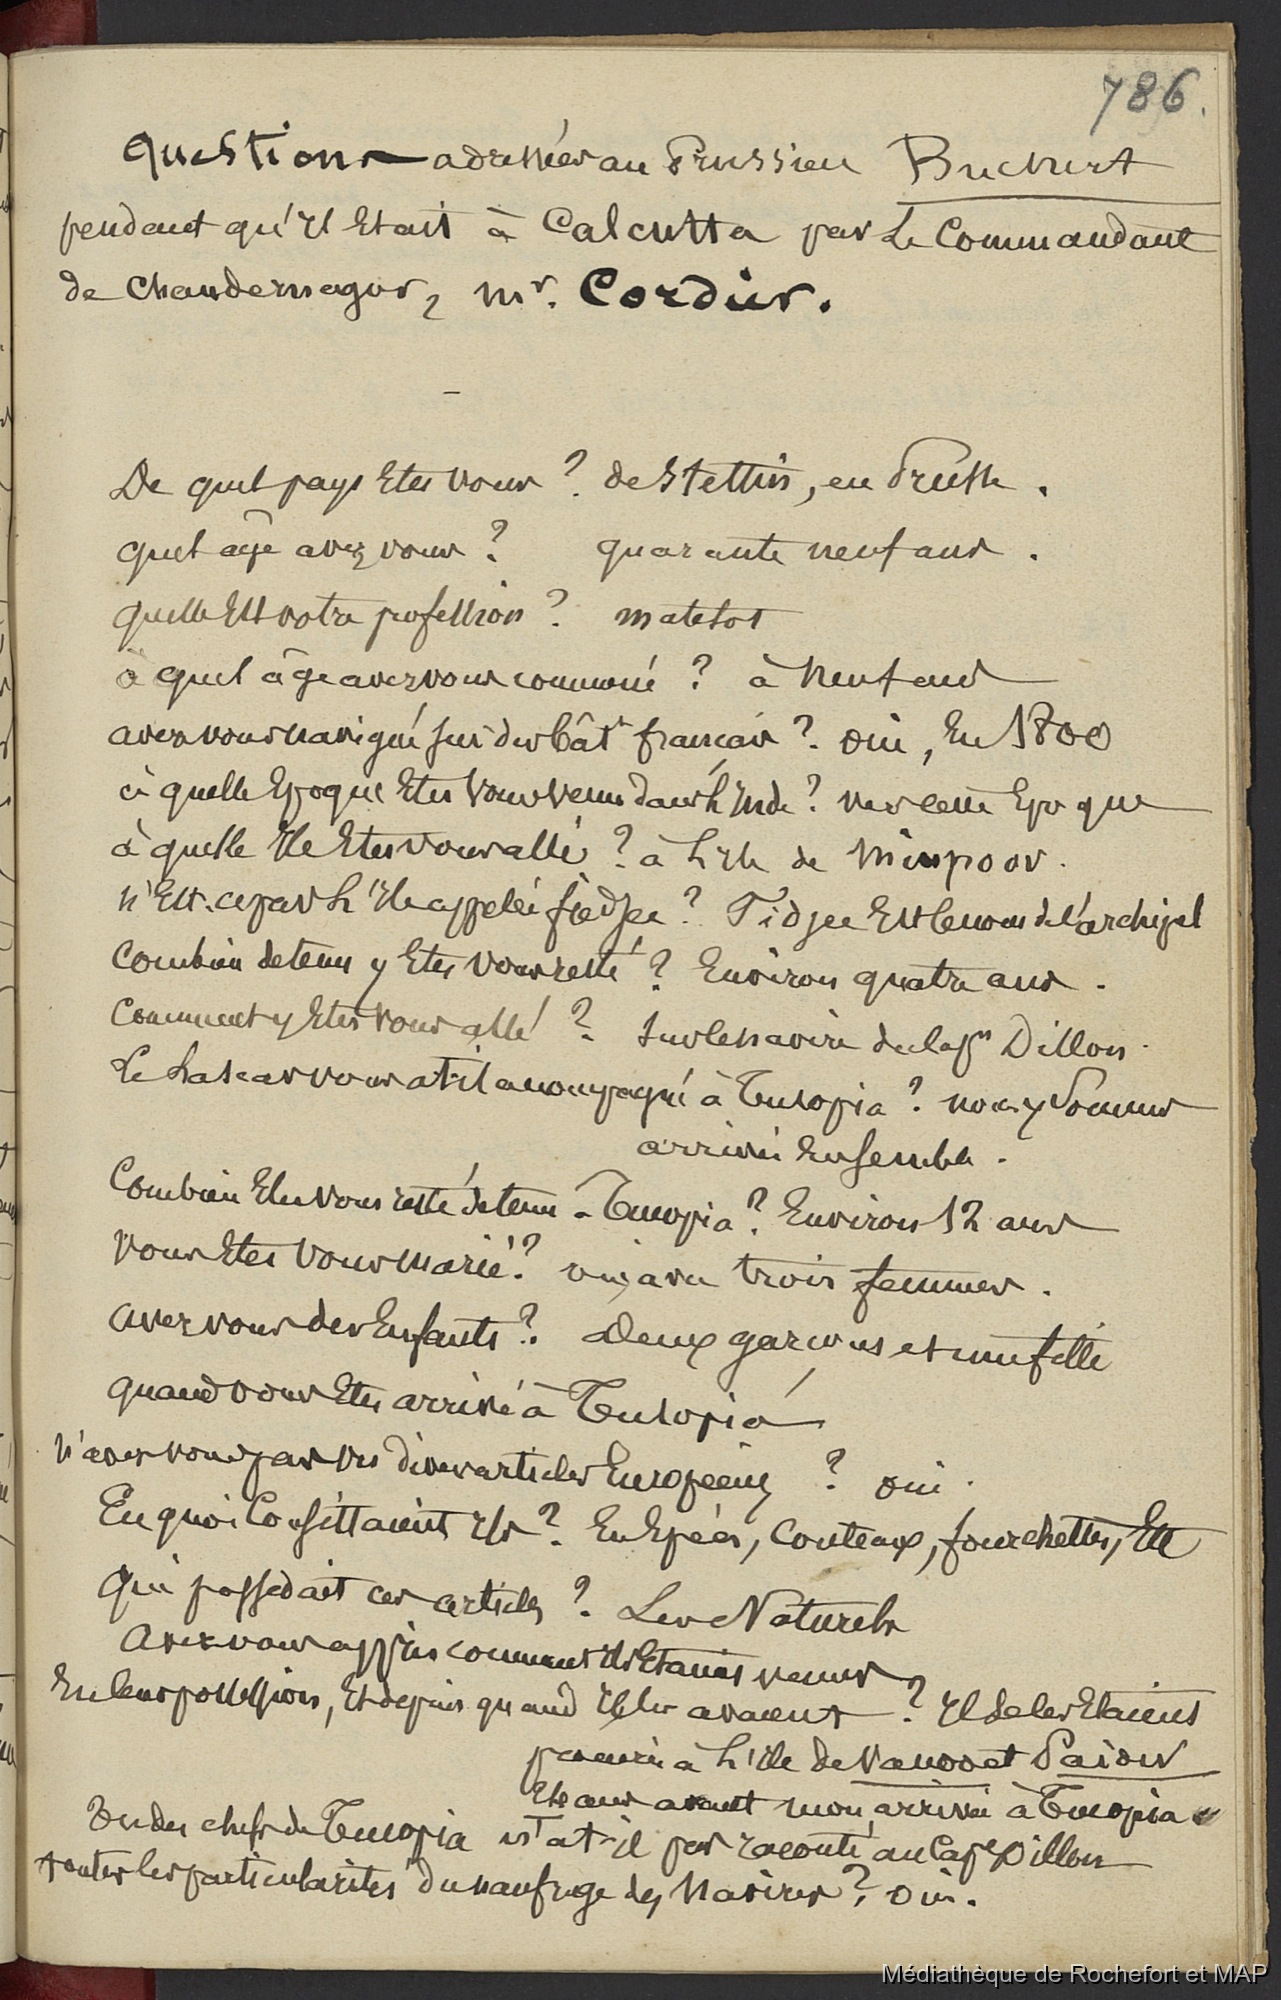 786.
Questions adressées au Prussien Buchert
pendant qu'il Etait à Calcutta par Le Commandant
de Chandernagor, Mr. Cordier.
De quel pays Etes vous ? de Stettin, en Prusse.
quel age avez vous ? quarante neuf ans.
quelle Est votre profession ? matelot
à quel âge avez vous commencé ? à Neuf ans
avez vous navigué sur des bâts français ? oui, En 1800
à quelle Epoque Etes vous venu dans L'Inde ? vers cette Epoque
à quelle Ile Etes vous allé ? à L'ile de
n'Est-ce pas L'Ile appelée fiedjee ? Fidjee Est le nom de l'archipel
Combien de tems y Etes vous resté ? Environ quatre ans.
Comment y Etes vous allé ? sur le navire du Capn Dillon.
Le Lascar vous a t-il accompagné à Tucopia ? nous y Sommes
arrivés Ensemble.
Combien Etes vous resté de tems à Tucopia ? Environ 12 ans
Vous Etes vous marié ? oui, à trois femmes.
avez vous des Enfants ? Deux garçons et une fille
quand vous Etes arrivé à Tucopia
n'avez vous pas vu divers articles Européens ? oui.
En quoi Consistaient ils ? En Epées, Couteaux, fourchettes, Etc
Qui possédait ces articles ? Les Naturels
Avez vous appris comment ils Etaient venus
En leur possession, Et depuis quand ils les avaient ? Ils se les Etaient
procurés à L'ile de Vanoo et Paiow
ans avant mon arrivée à Tucopia
Un des chefs de Tucopia n'a t-il pas raconté au Cape Dillon
toutes les particularités du naufrage des Navires ? oui.
Médiathèque de Rochefort et MAP